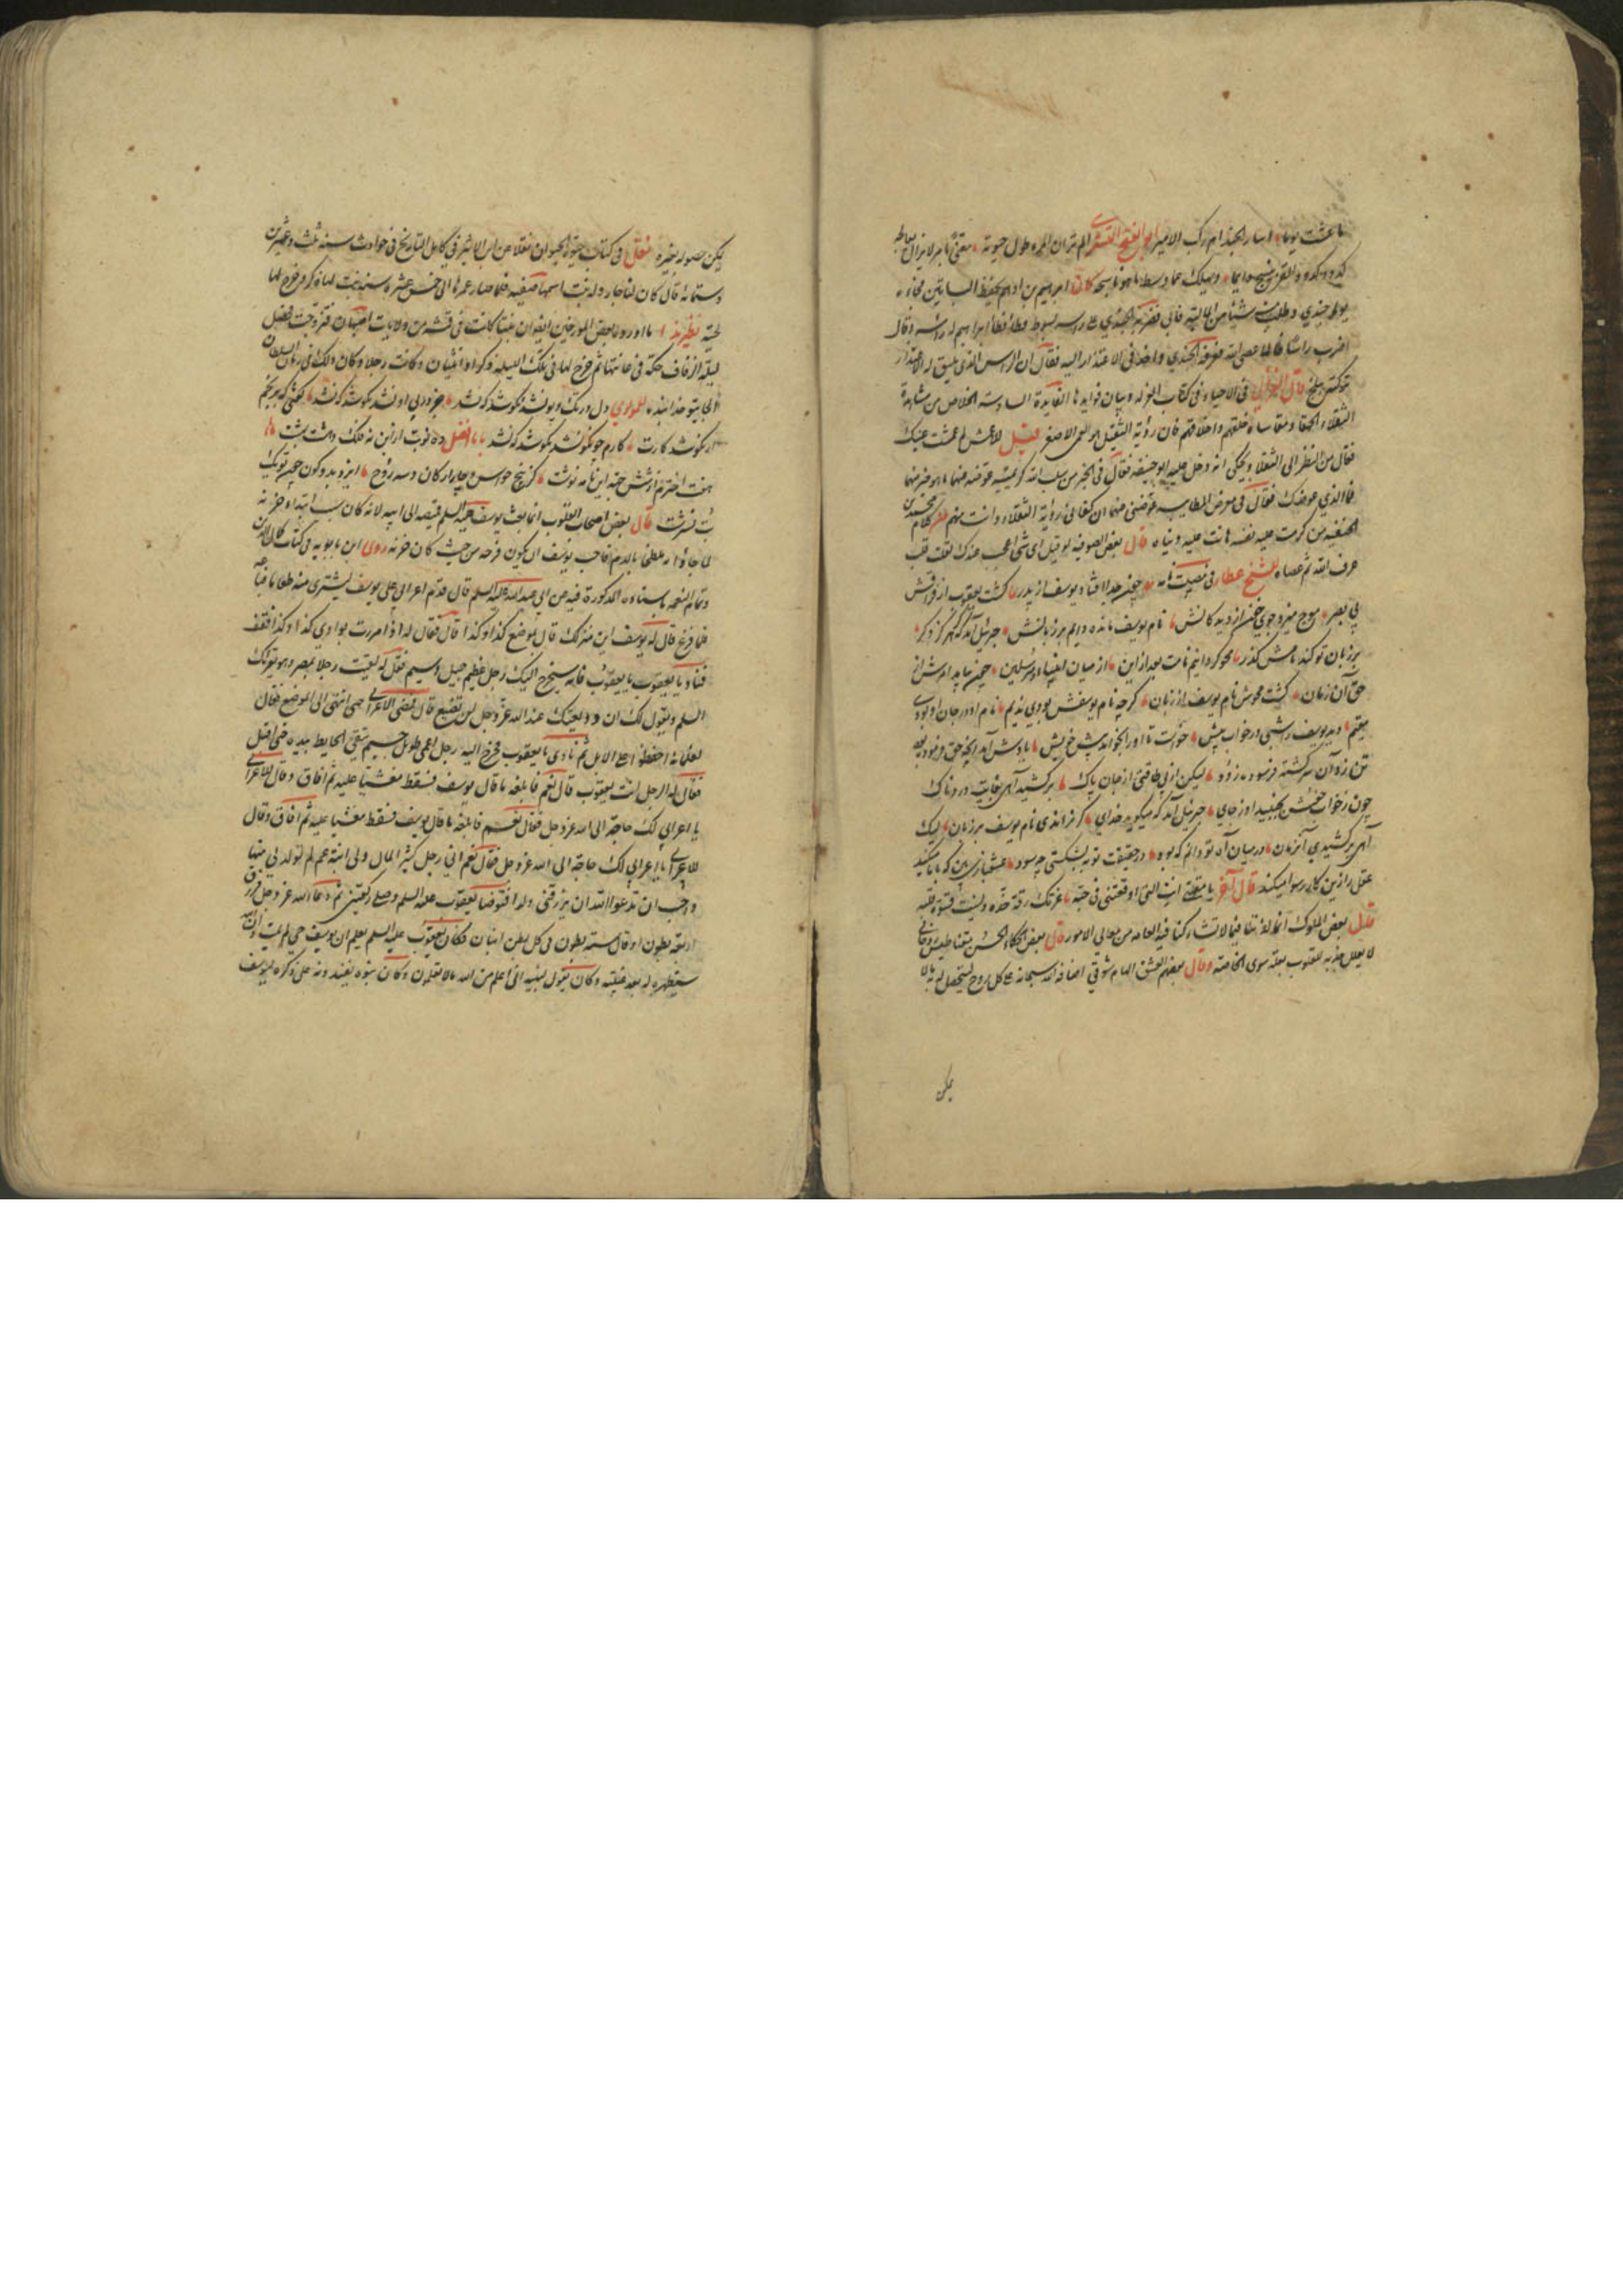 ما عشت يوما اسار الجند ام ركب الامير ابو الفتح البستي الم تر ان المرء طول حيوته معنى بامر لا يزال يعالجه
كدود كدود القز ينسج دايما ويهلك غما وسط ما هو ناسجه كان ابراهيم بن ادهم يحفظ البساتين فجاءه
يوما جندي وطلب منه شيئا من الفاكهة فابى فضربه الجندي على راسه بسوط فطأطأ ابراهيم له راسه وقال
اضرب راسا طالما عصى الله فعرفه الجندي واخذ في الاعتذار اليه فقال ان الراس الذي يليق له الاعتذار
تركته ببلخ قال الغزالي في الاحياء في كتاب العزلة وبيان فوايدها الفايدة السادسة الخلاص من مشاهدة
الثقلاء والحمقا ومقاساة خلقهم واخلاقهم فان رؤية الثقيل هو العمى الاصغر قيل للاعمش لم عمشت عينك
فقال من النظر الى الثقلا ويحكى انه دخل عليه ابو حنيفه فقال في الخبر من سلب الله كريمتيه عوضه عنهما ما هو خير منهما
فما الذي عوضك فقال في معرض المطايبه عوضني عنهما ان كفاني رؤية الثقلاء وانت منهم من كلام محمد بن
الحنفيه من كرمت عليه نفسه هانت عليه دنياه قال بعض الصوفيه لو قيل اي شيء اعجب عندك لقلت قلب
عرف الله ثم عصاه للشيخ عطار في مصيبت نامه چون جدا افتاد يوسف از پدر گشت يعقوب از فراقش
بي بصر موج ميزد جوي خون از ديدگانش نام يوسف مانده دايم بر زبانش جبرئيل آمد كه گر هرگز دگر
بر زبان تو كند نامش گذر محو گردانيم نامت بعد ازين از ميان انبياء و مرسلين چون بيامد امرش از
حق آن زمان گشت محوش نام يوسف از زبان گرچه نام يوسفش بودي نديم نام او در جان او بودي
مقيم ديد يوسف را شبي در خواب پيش خواست تا او را بخواند پيش خويش يادش آمد آنچه حق فرموده بود
تن زد آن سرگشته فرسوده زود ليكن از بي طاقتي از جان پاك بركشيد آهي بغايت دردناك
چون ز خواب خوش بجنبيد او ز جاي جبرئيل آمد كه ميگويد خداي گر نراندي نام يوسف بر زبان ليك
آهي بركشيدي آن زمان در ميان آه تو دانم كه بود در حقيقت توبه بشكستي چه سود عشقبازي بين كه با ما ميكند
عقل را زين كار رسوا ميكند قال آخر يا مقلتي انت التي اوقعتني في حبه غرتك رقة خده ونسيت قسوة قلبه
قال بعض الملوك انما لذتنا فيما لا تشاركنا فيه العامه من معالي الامور قال بعض الحكماء الحسن مغناطيس روحاني
لا يعلل جذبه للقلوب بعلة سوى الخاصية وقال بعضهم العشق الهام شوقي افاضه الله سبحانه على كل روح ليتحصل له به ما لا
يمكن
يمكن حصوله بغيره نقل في كتاب حيوة الحيوان نقلا عن ابن الاثير في كامل التاريخ في حوادث سنة ثلث وعشرين
وستمائه قال كان لنا جار وله بنت اسمها صفيه فلما صار عمرها الى خمس عشرة سنه نبت لها ذكر وخرج لها
لحية نظير هذا ما اورده بعض المورخين ايضا ان بنتا كانت في قمشه من ولايات اصفهان فتزوجت فحصل
ليلة الزفاف حكة في عانتها ثم خرج لها في تلك الليلة ذكر وانثيان وكانت رجلا وكان ذلك في زمان السلطان
الجايتو خدابنده للمولوي دل در تك و پو نشد نكوشد كه نشد جز در پي او نشد نكوشد كه نشد گفتي كه برنجم
ار نكو شد كارت كارم چو نكو نشد نكوشد كه نشد بابا افضل ده نوبت از اين نه فلك و هشت بهشت
هفت اخترم از شش جهة اين نامه نوشت كز پنج حواس و چهار اركان و سه روح ايزد بدو كون چون تو يك
بت نسرشت قال بعض اصحاب القلوب انما بعث يوسف عليه السلم قميصه الى ابيه لانه كان سبب ابتداء حزنه
لما جاؤا به ملطخا بالدم فاحب يوسف ان يكون فرحه من حيث كان حزنه روى ابن بابويه في كتاب كمال الدين
وتمام النعمه باسناده المذكورة فيه عن ابي عبد الله عليه السلم قال قدم اعرابي على يوسف ليشتري منه طعاما فباعه
فلما فرغ قال له يوسف اين منزلك قال بموضع كذا وكذا قال فقال له اذا مررت بوادي كذا وكذا فقف
فناد يا يعقوب يا يعقوب فانه سيخرج اليك رجل عظيم جميل وسيم فقل له لقيت رجلا بمصر وهو يقرئك
السلم ويقول لك ان وديعتك عند الله عز وجل لن تضيع قال فمضى الاعرابي حتى انتهى الى الموضع فقال
لغلمانه احفظوا علي الابل ثم نادى يا يعقوب فخرج اليه رجل اعمى طويل جسيم يتقي الحايط بيده حتى اقبل
فقال له الرجل انت يعقوب قال نعم فابلغه ما قال يوسف فسقط مغشيا عليه ثم افاق وقال للاعرابي
يا اعرابي لك حاجة الى الله عز وجل فقال نعم فابلغه ما قال يوسف فسقط مغشيا عليه ثم افاق وقال
للاعرابي يا اعرابي لك حاجة الى الله عز وجل فقال نعم اني رجل كثير المال ولي ابنة عم لم تولد لي منها
واحب ان تدعو الله ان يرزقني ولدا فتوضا يعقوب عليه السلم وصلى ركعتين ثم دعا الله عز وجل فرزق
اربعة بطون او قال ستة بطون في كل بطن اثنان فكان يعقوب عليه السلم يعلم ان يوسف حي لم يمت وان الله
سيظهره له بعد غيبته وكان يقول لبنيه اني اعلم من الله ما لا تعلمون وكان بنوه يفندونه على ذكره ليوسف